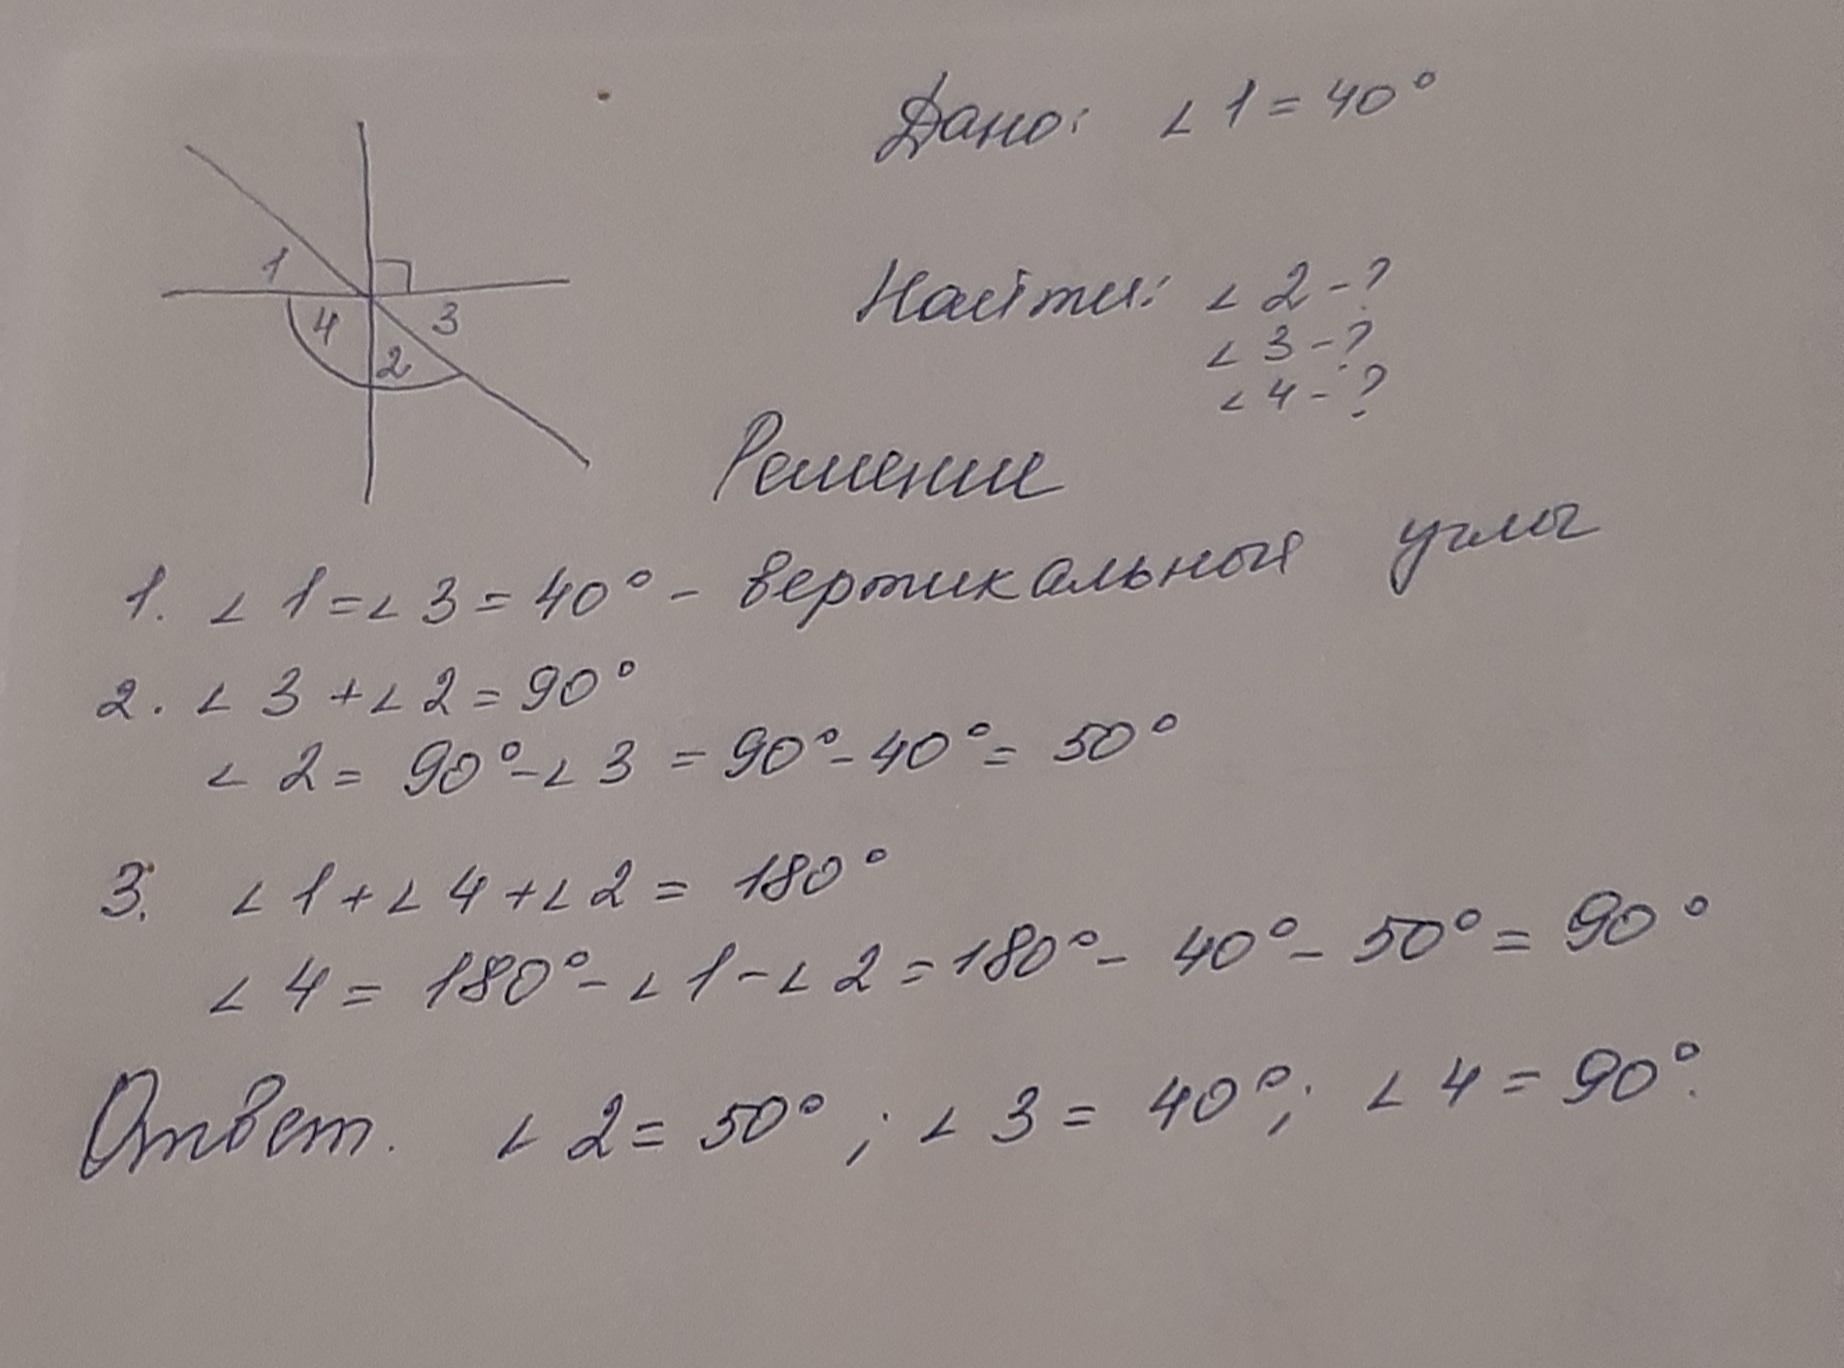 Дано: ∠1=40°
1
4
3
2
Найти: ∠2-?
∠3-?
∠4-?
Решение
1. ∠1=∠3=40° - вертикальный углы
2. ∠3+∠2=90°
∠2=90°-∠3=90°-40°=50°
3. ∠1+∠4+∠2=180°
∠4=180°-∠1-∠2=180°-40°-50°=90°
Ответ. ∠2=50°; ∠3=40°; ∠4=90°.